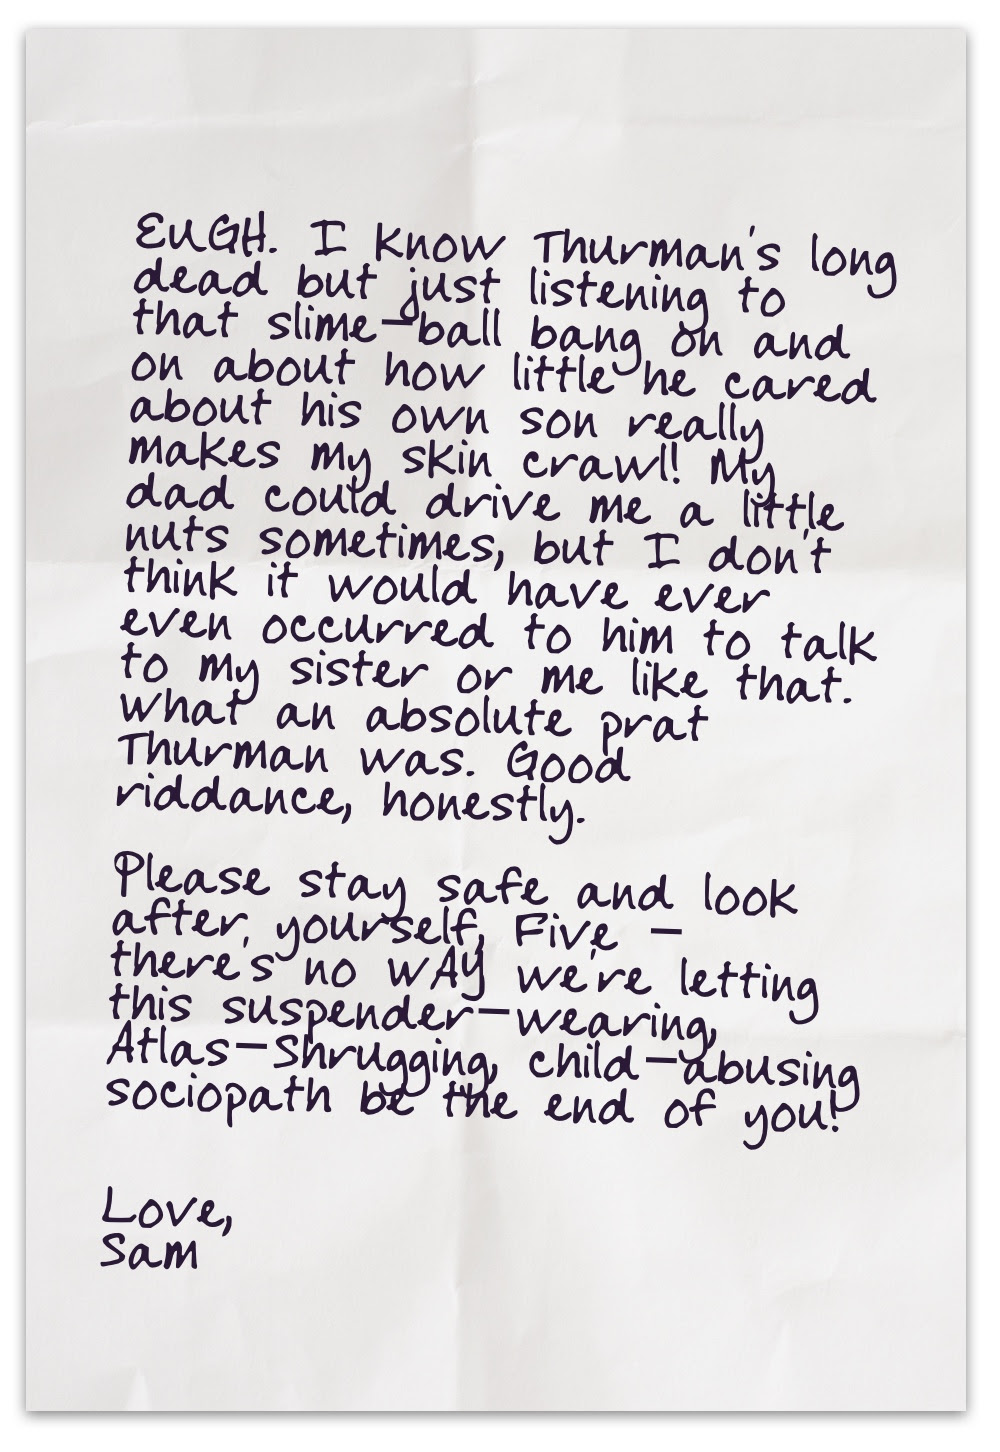 EUGH. I know Thurman's long
dead but just listening to
that slime-ball bang on and
on about how little he cared
about his own son really
makes my skin crawl! My
dad could drive me a little
nuts sometimes, but I don't
think it would have ever
even occurred to him to talk
to my sister or me like that.
What an absolute prat
Thurman was. Good
riddance, honestly.
Please stay safe and look
after yourself, Five -
there's no wAY we're letting
this suspender-wearing,
Atlas-Shrugging, child-abusing
sociopath be the end of you!
Love,
Sam